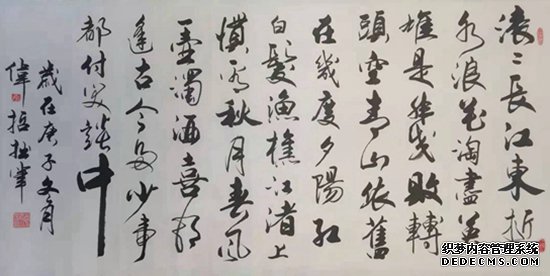 滚〻長江東逝
水浪花淘盡英
雄是非成敗轉
頭空青山依舊
在幾度夕陽紅
白髮漁樵江渚上
慣看秋月春風
一壺濁酒喜相
逢古今多少事
都付笑談中
歲在庚子文月
偉哲拙筆
织梦内容管理系统
DEDECMS.COM